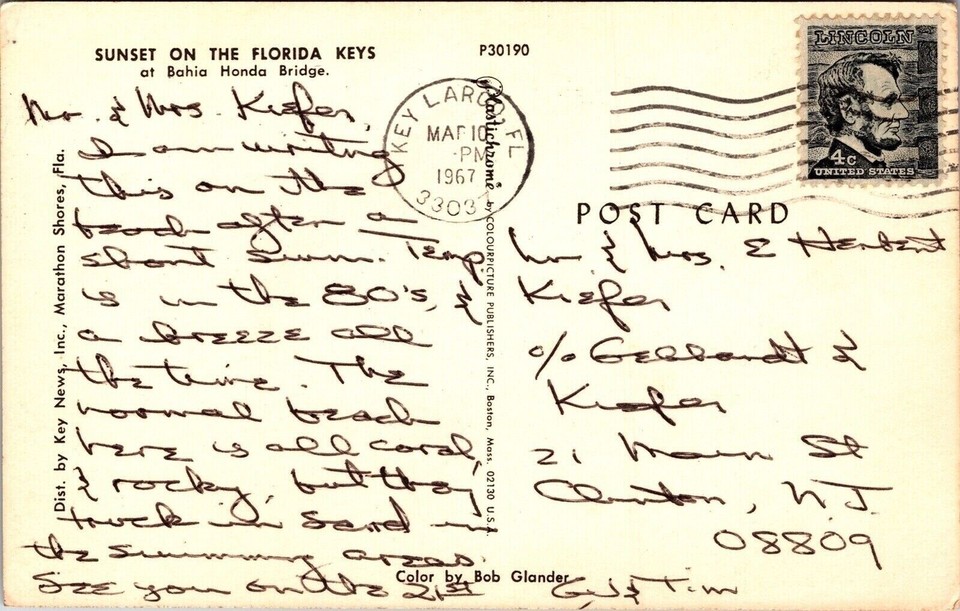 SUNSET ON THE FLORIDA KEYS
at Bahia Honda Bridge.
P30190
LINCOLN
4c
UNITED STATES
KEY LARGO FL
MAR 10
-PM
1967
33037
POST CARD
Mr. & Mrs. Kiefer,
I am writing
this on the
beach after a
short swim. Temp.
is in the 80's, &
a breeze all
the time. The
normal beach
here is all coral,
& rocky, but they
truck in sand in
the swimming areas.
See you on the 21st
& Tim
Mr. & Mrs. E Herbert
Kiefer
c/o Gebhardt &
Kiefer
21 Main St
Clinton, N.J.
08809
Dist. by Key News, Inc., Marathon Shores, Fla.
Plastichrome ® by COLOURPICTURE PUBLISHERS, INC., Boston, Mass. 02130 U.S.A.
Color by Bob Glander